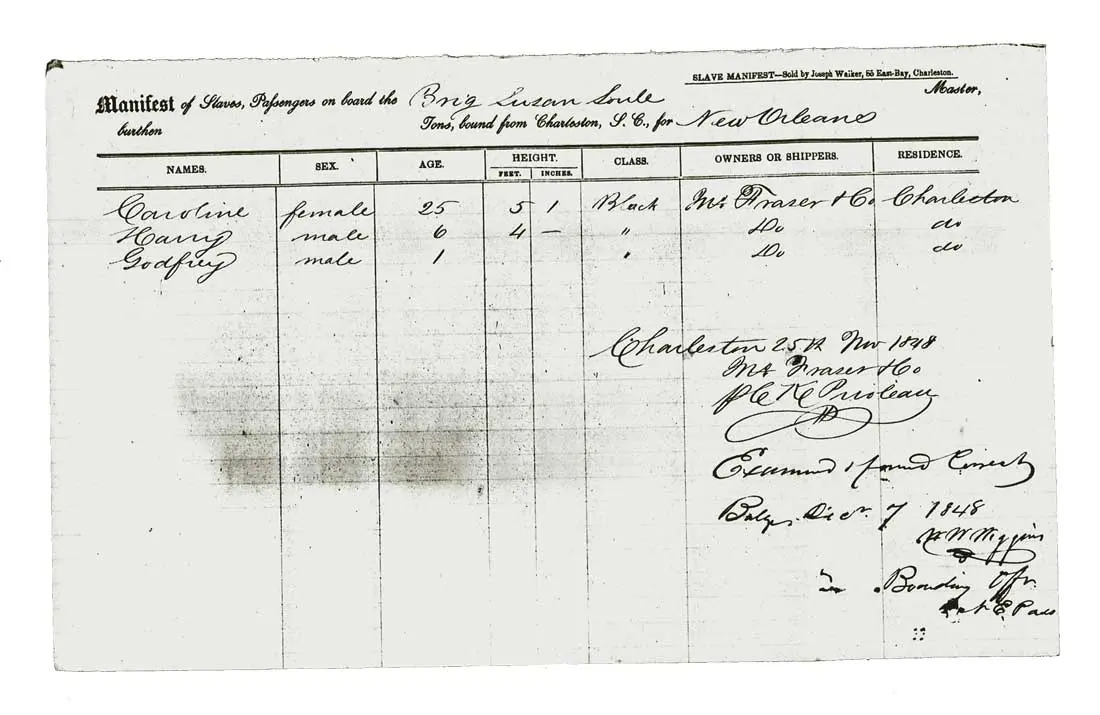 SLAVE MANIFEST—Sold by Joseph Walker, 55 East-Bay, Charleston.
Manifest of Slaves, Passengers on board the Brig Susan Soule Master,
burthen Tons, bound from Charleston, S. C., for New Orleans
NAMES. SEX. AGE. HEIGHT. CLASS. OWNERS OR SHIPPERS. RESIDENCE.
FEET. INCHES.
Caroline female 25 5 1 Black Fraser & Co Charleston
Harry male 6 4 — " Do do
Godfrey male 1 " Do do
Charleston 25th Nov 1848
Fraser & Co
Prioleau
Examined & found Correct
Decr. 7 1848
Wiggins
Boarding Offr.